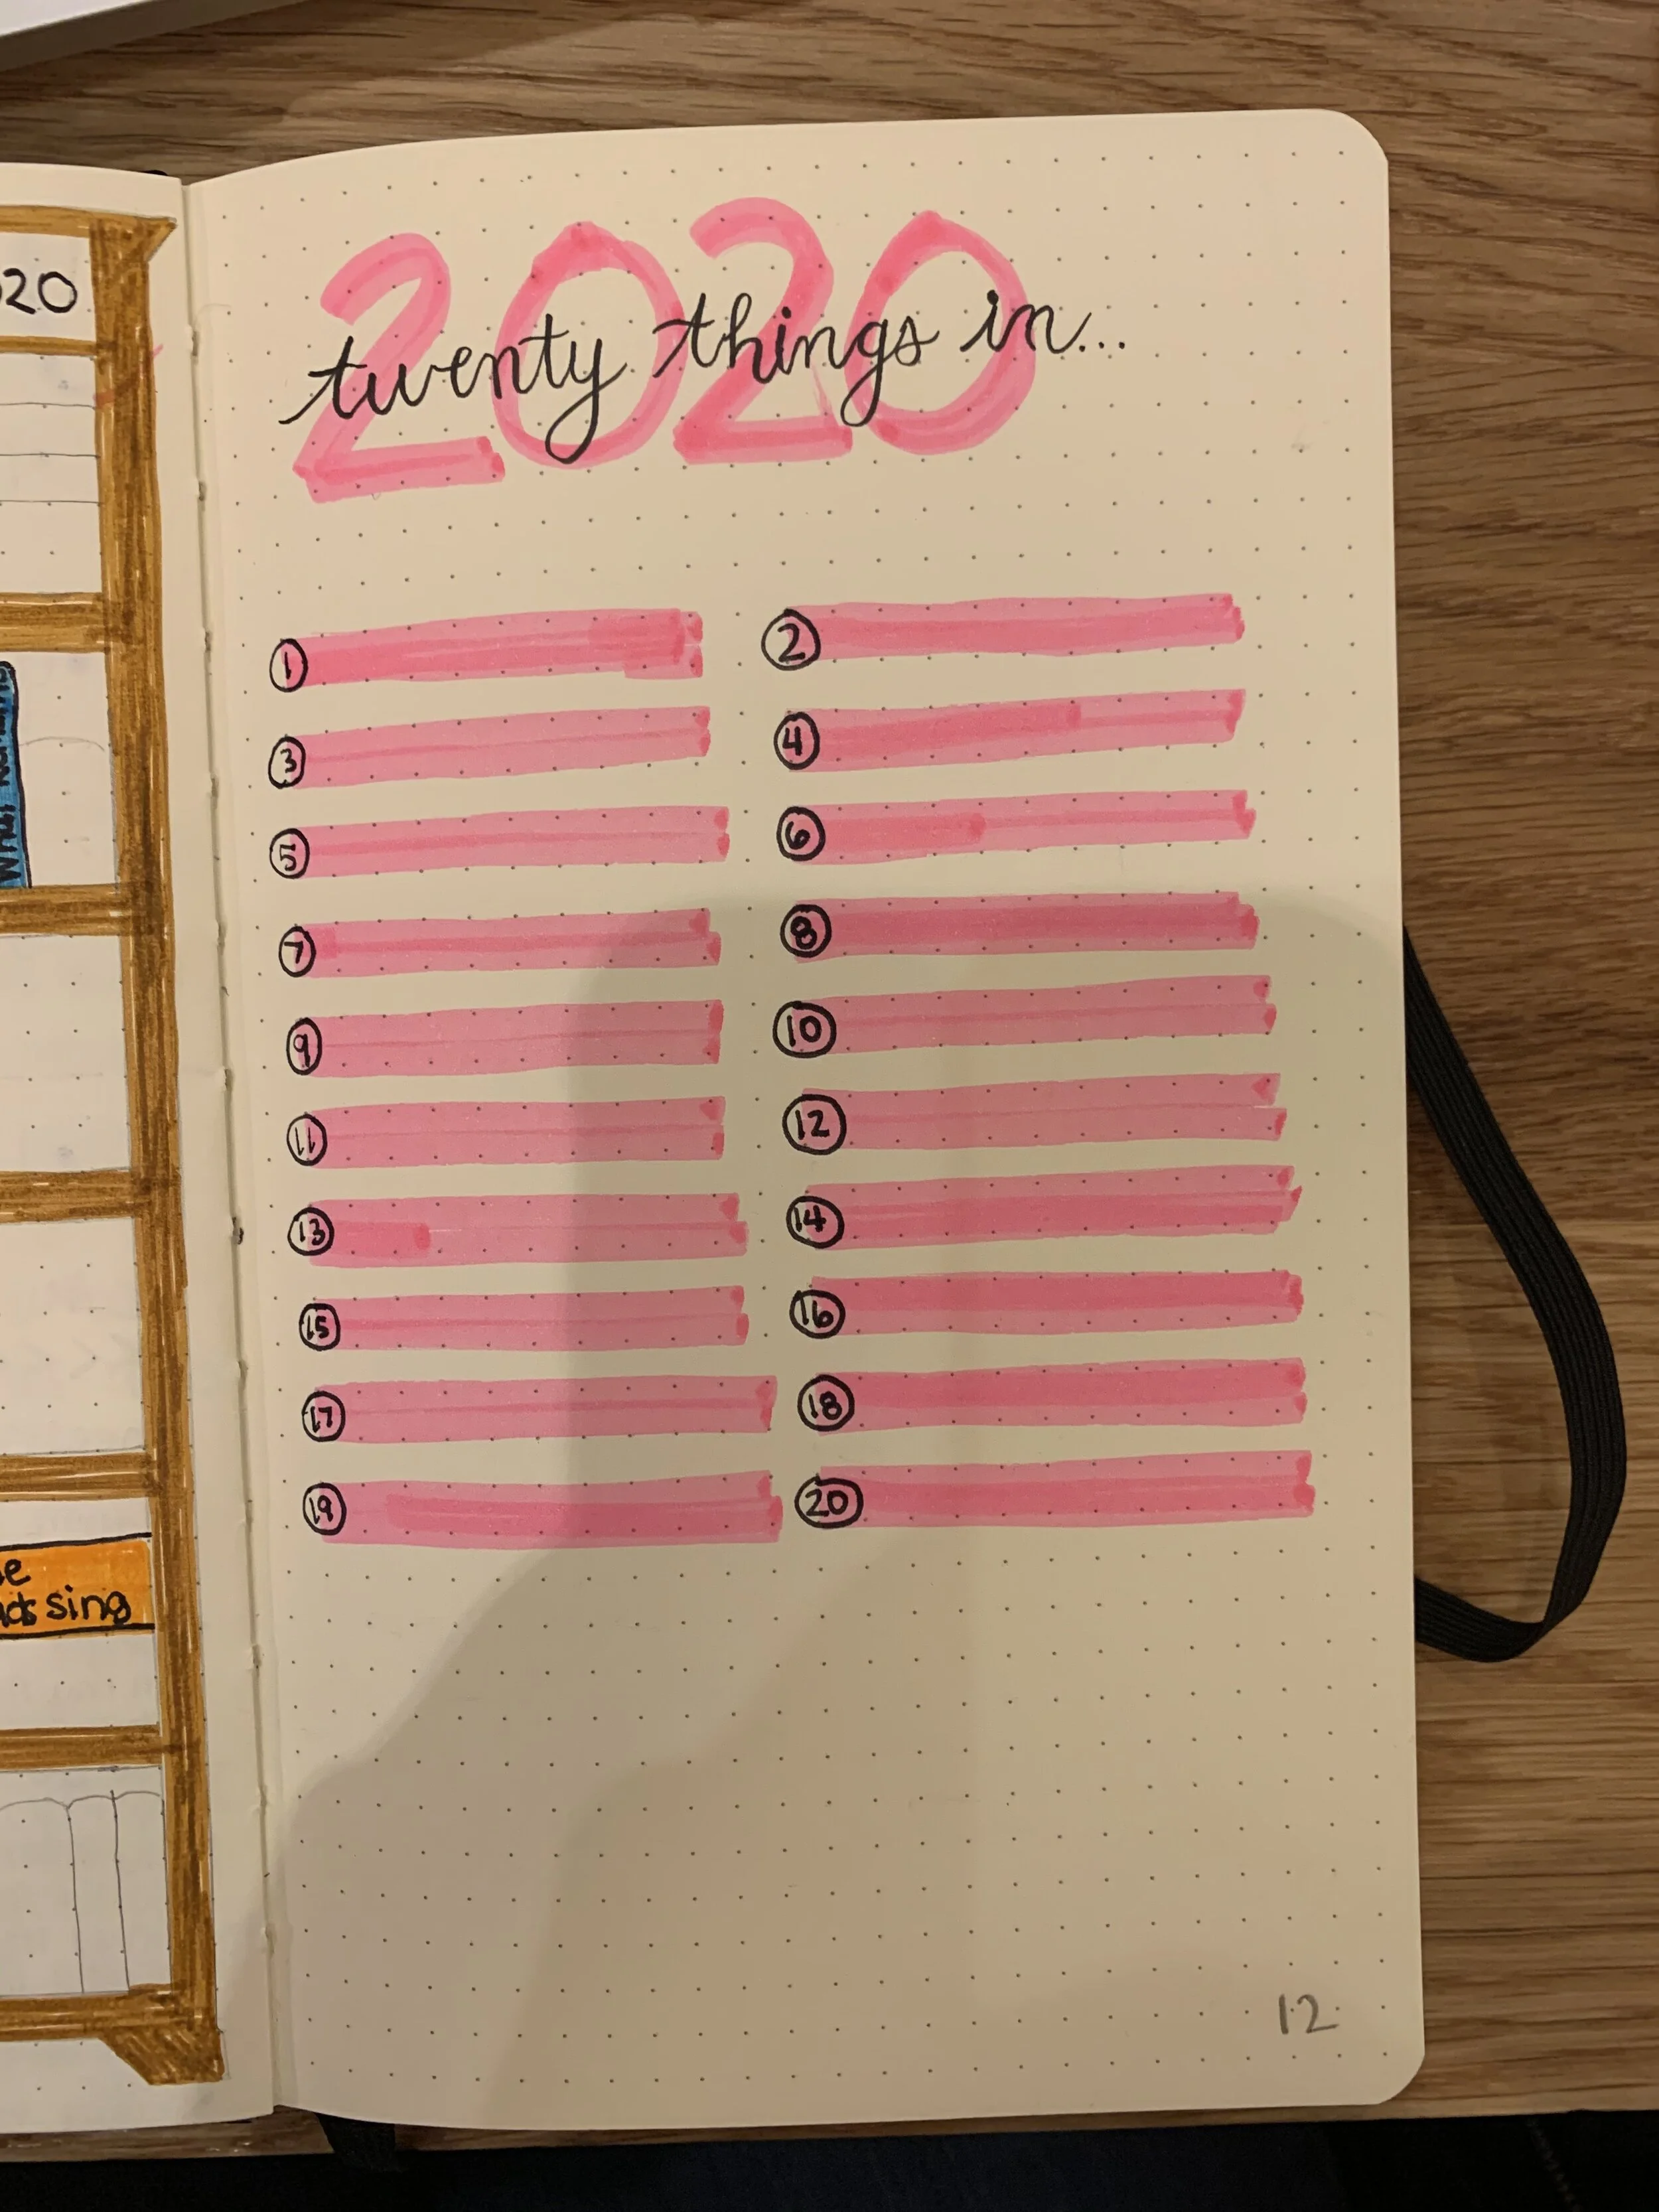 20
2020
twenty things in...
1
2
3
4
5
6
7
8
9
10
11
12
13
14
15
16
17
18
19
20
sing
12